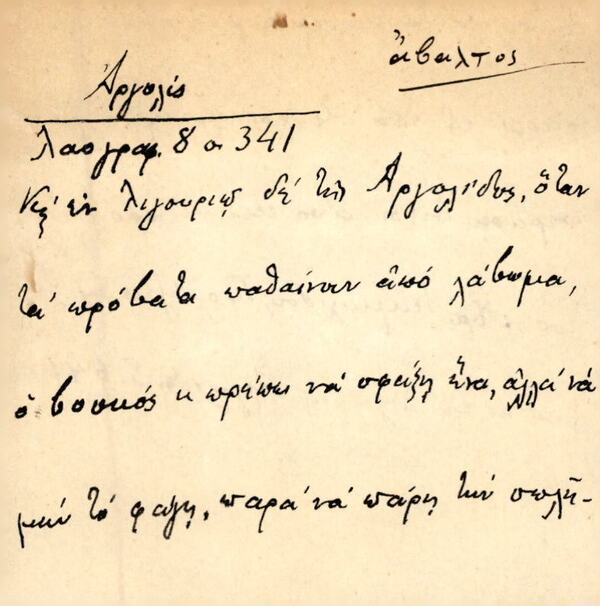 ἄβαλτος
Ἀργολίς
Λαογραφ. 8 σ. 341
ἐν Λιγουριῷ δέ τῆς Ἀργολίδος, ὅταν
τά πρόβατα παθαίνουν ἀπό λάβωμα,
ὁ βοσκός πρέπει νά σφάξῃ ἕνα, ἀλλά νά
μήν τό φάγῃ, παρά νά πάρῃ τήν σπλῆ-